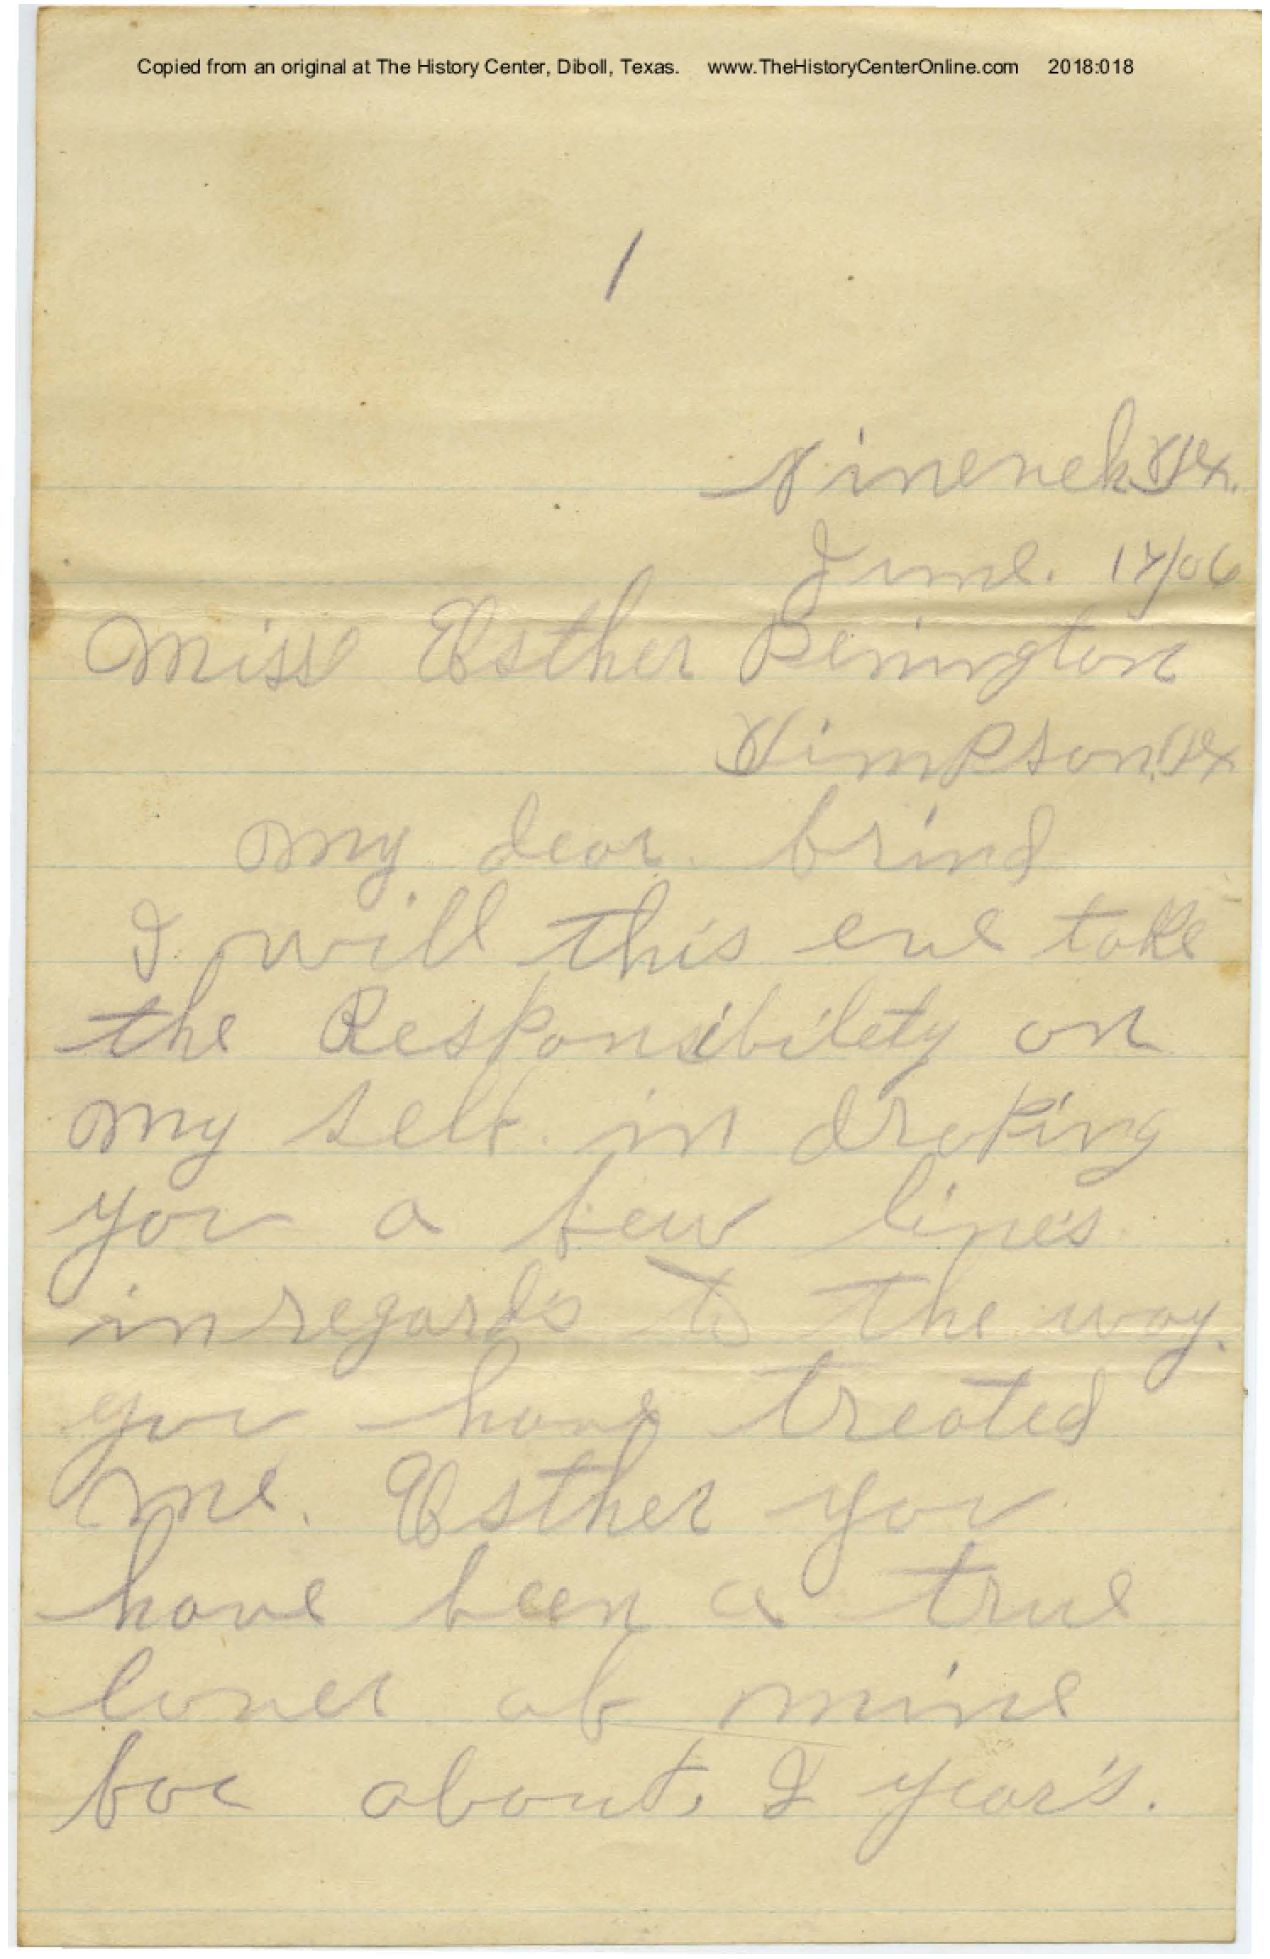 Copied from an original at The History Center, Diboll, Texas. www.TheHistoryCenterOnline.com 2018:018
1
Tex.
June. 17/06
Miss Esther Benington
Timpson, Tex
my dear frind
I will this eve take
the Responsibilety on
my self in droping
you a few lines
in regards to the way.
you have treated
me. Esther you
have been a true
lover of mine
for about, 2 year's.